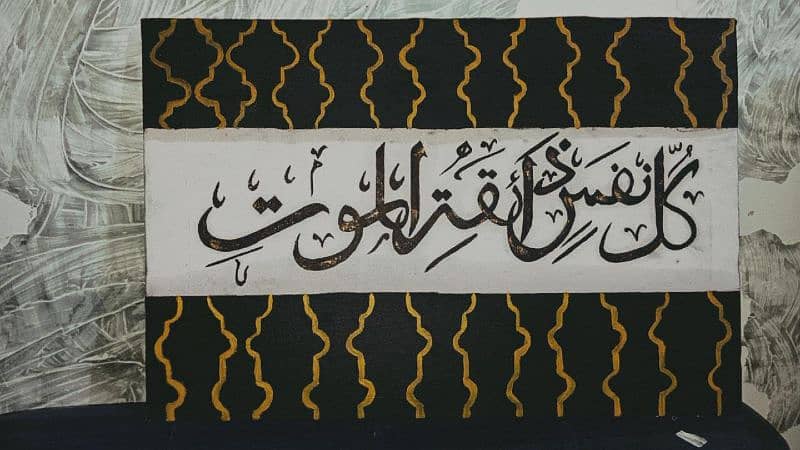 كُلُّ نفسٍ ذائقةُ الموتِ